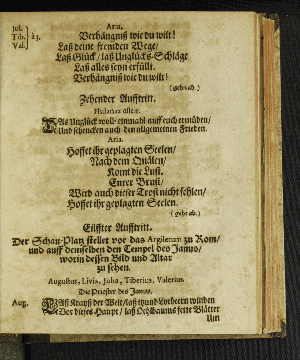 Aria.
Jul. Tib. Val. à 3. Verhängniß wie du wilt!
Laß deine fremden Wege/
Laß Glück/ laß Unglücks-Schläge
Laß alles seyn erfüllt.
Verhängniß wie du wilt!
(geh: ab.)
Zehender Aufftritt.
Phalanax allein.
DAs Unglück woll einmahl auff euch ermüden/
Und schencken auch den allgemeinen Frieden.
Aria.
Hoffet ihr geplagten Seelen/
Nach dem Quälen/
Komt die Lust.
Eurer Brust/
Wird auch dieser Trost nicht fehlen/
Hoffet ihr geplagten Seelen.
(geht ab.)
Eilffter Aufftritt.
Der Schau-Platz stellet vor das Argiletum zu Rom/
und auff demselben den Tempel des Janus/
worin dessen Bild und Altar
zu sehen.
Augustus, Livia, Julia, Tiberius, Valerius.
Die Priester des Janus.
Aug. DAß Krayß der Welt/ laß itzund Lorbeern winden
Uer dieses Haupt/ laß Oehlbaums feite Blätter
Um